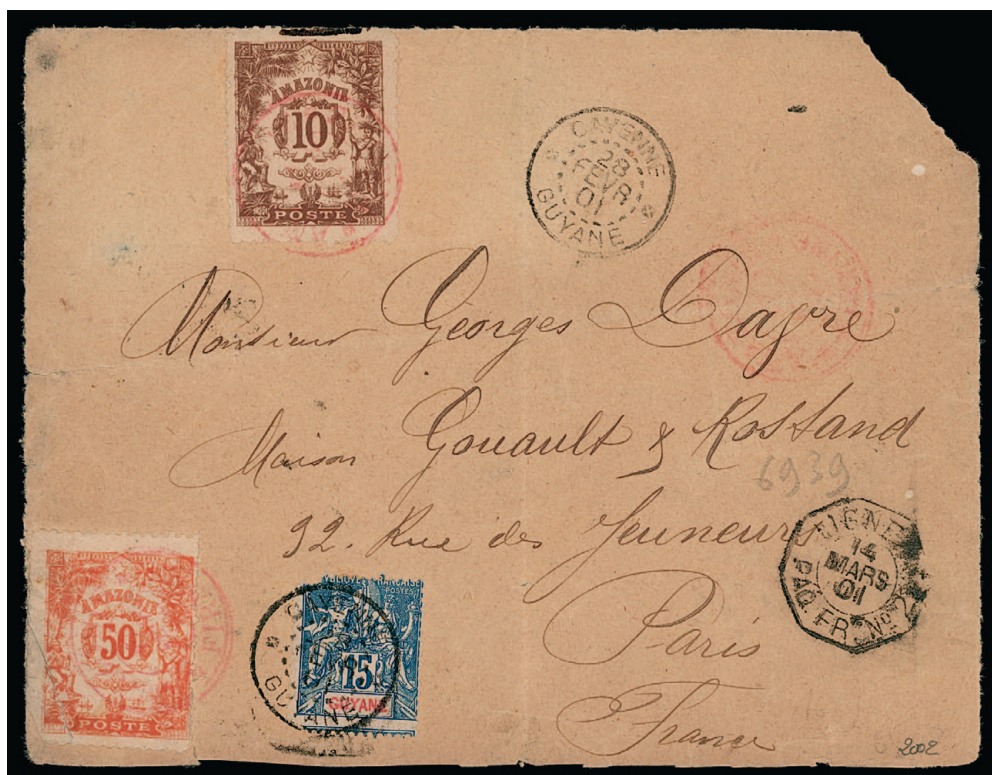 AMAZONIE
10
POSTE
CAYENNE
28
FEVR.
01
GUYANE
Monsieur Georges Dagre
Maison Gouault & Rostand
6939
32. Rue des Jeuneurs
Paris
France
LIGNE
14
MARS
01
PAQ. FR. No. 2
AMAZONIE
50
POSTE
CAYENNE
GUYANE
POSTES
15
GUYANE
2002